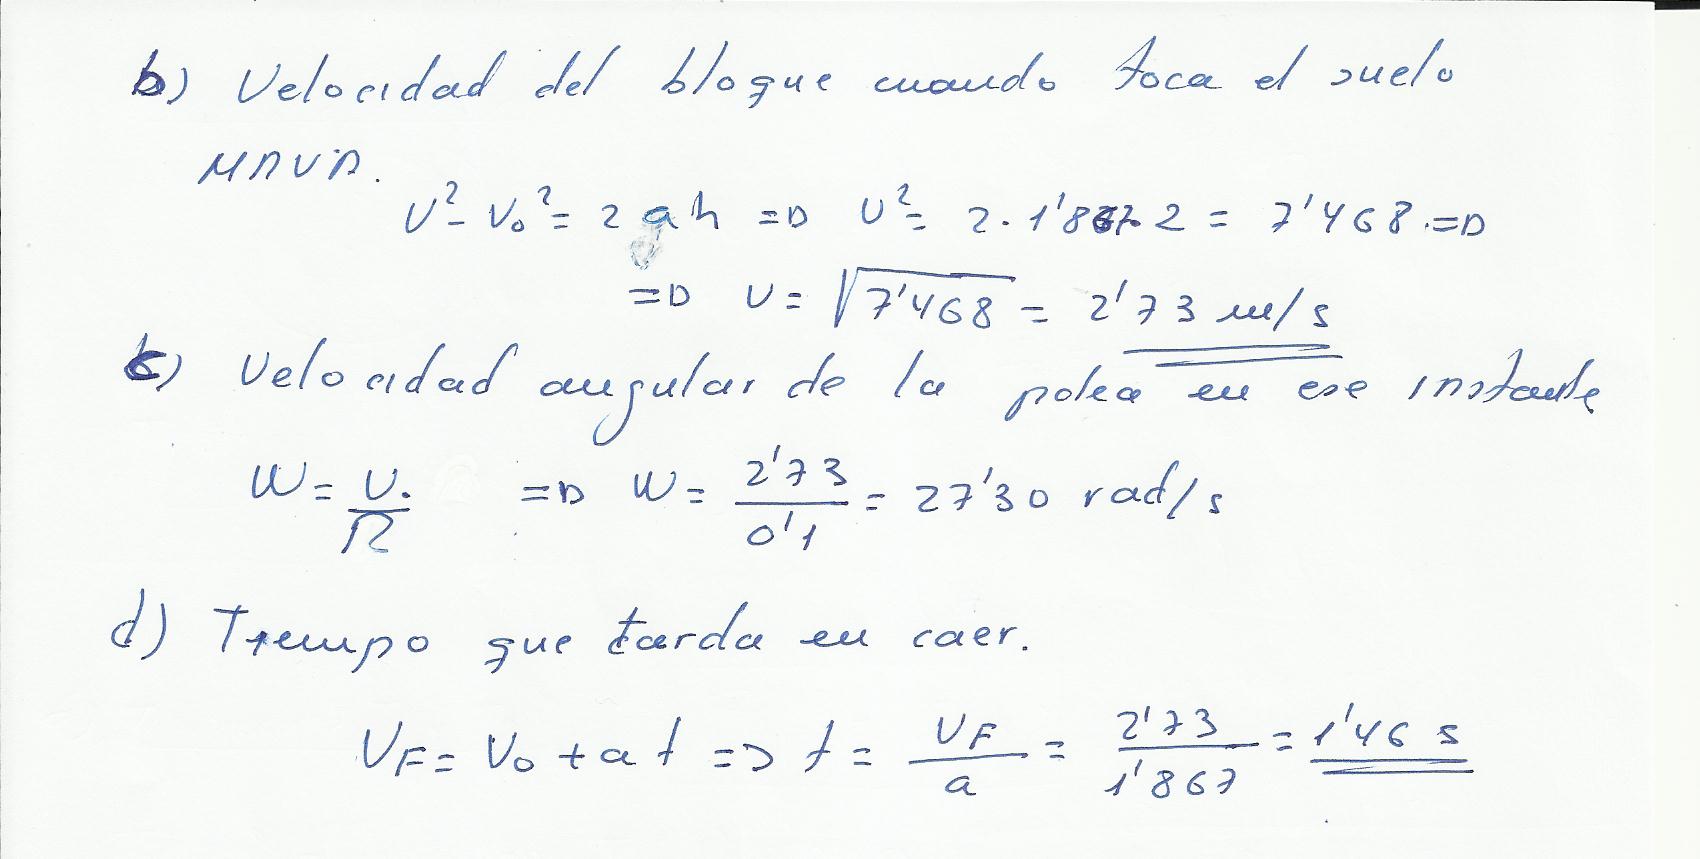 b) Velocidad del bloque cuando toca el suelo
MRUA.
V² - V₀² = 2 a h => V² = 2 · 1'867 · 2 = 7'468 =>
=> V = √7'468 = 2'73 m/s
c) Velocidad angular de la polea en ese instante
W = V/R => W = 2'73/0'1 = 27'30 rad/s
d) Tiempo que tarda en caer.
VF = V₀ + a t => t = VF/a = 2'73/1'867 = 1'46 s